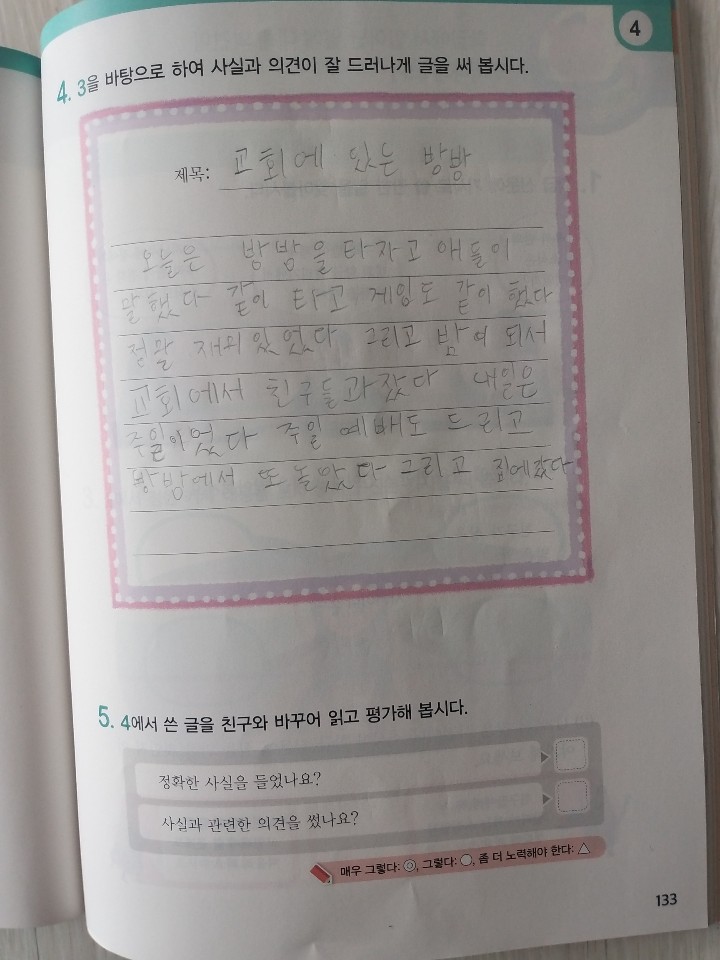 4
4. 3을 바탕으로 하여 사실과 의견이 잘 드러나게 글을 써 봅시다.
제목: 교회에 있는 방방
오늘은 방방을 타자고 애들이
말했다 같이 타고 게임도 같이 했다
정말 재미있었다 그리고 밤이 되서
교회에서 친구들과잤다 내일은
주일이었다 주일 예배도 드리고
방방에서 또 놀았다 그리고 집에갔다
5. 4에서 쓴 글을 친구와 바꾸어 읽고 평가해 봅시다.
정확한 사실을 들었나요?
사실과 관련한 의견을 썼나요?
매우 그렇다: ◎, 그렇다: ○, 좀 더 노력해야 한다: △
133